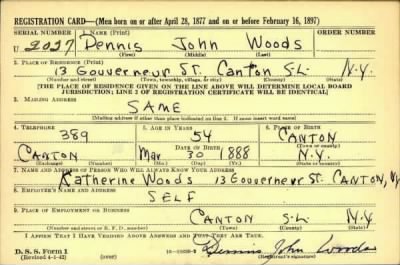 REGISTRATION CARD—(Men born on or after April 28, 1877 and on or before February 16, 1897)
SERIAL NUMBER 1. NAME (Print) ORDER NUMBER
U. 2027 Dennis John Woods
(First) (Middle) (Last)
2. PLACE OF RESIDENCE (Print)
13 Gouverneur St. Canton S.L. N.Y.
(Number and street) (Town, township, village, or city) (County) (State)
[THE PLACE OF RESIDENCE GIVEN ON THE LINE ABOVE WILL DETERMINE LOCAL BOARD
JURISDICTION; LINE 2 OF REGISTRATION CERTIFICATE WILL BE IDENTICAL]
3. MAILING ADDRESS
SAME
[Mailing address if other than place indicated on line 2. If same insert word same]
4. TELEPHONE 5. AGE IN YEARS 6. PLACE OF BIRTH
389 54 CANTON
DATE OF BIRTH (Town or county)
CANTON Mar 30 1888 N.Y.
(Exchange) (Number) (Mo.) (Day) (Yr.) (State or country)
7. NAME AND ADDRESS OF PERSON WHO WILL ALWAYS KNOW YOUR ADDRESS
Katherine Woods 13 Gouverneur St. CANTON, NY
8. EMPLOYER'S NAME AND ADDRESS
SELF
9. PLACE OF EMPLOYMENT OR BUSINESS
CANTON S.L. N.Y.
(Number and street or R. F. D. number) (Town) (County) (State)
I AFFIRM THAT I HAVE VERIFIED ABOVE ANSWERS AND THAT THEY ARE TRUE.
D. S. S. Form 1
(Revised 4-1-42) (over) Dennis John Woods